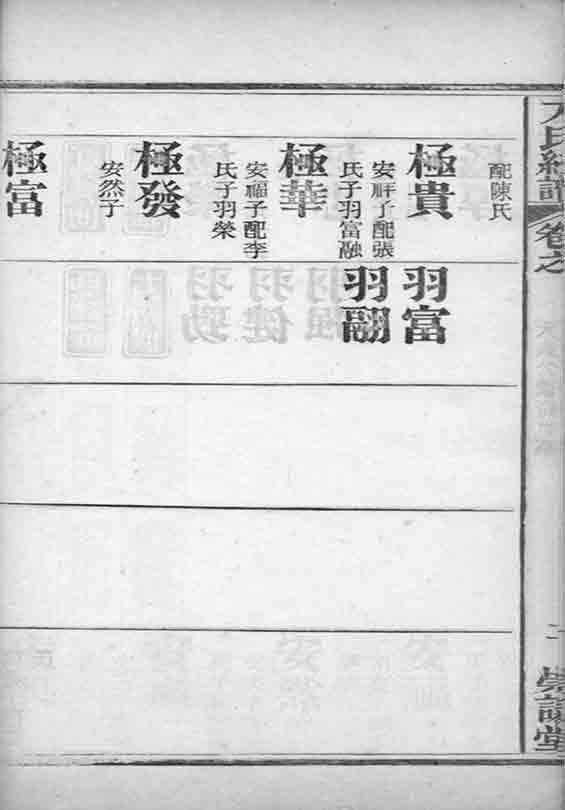 氏續譜
卷之
配陳氏
極貴
安祥子配張
氏子羽富融
極華
安福子配李
氏子羽榮
極發
安然子
極富
羽富
羽翮
堂